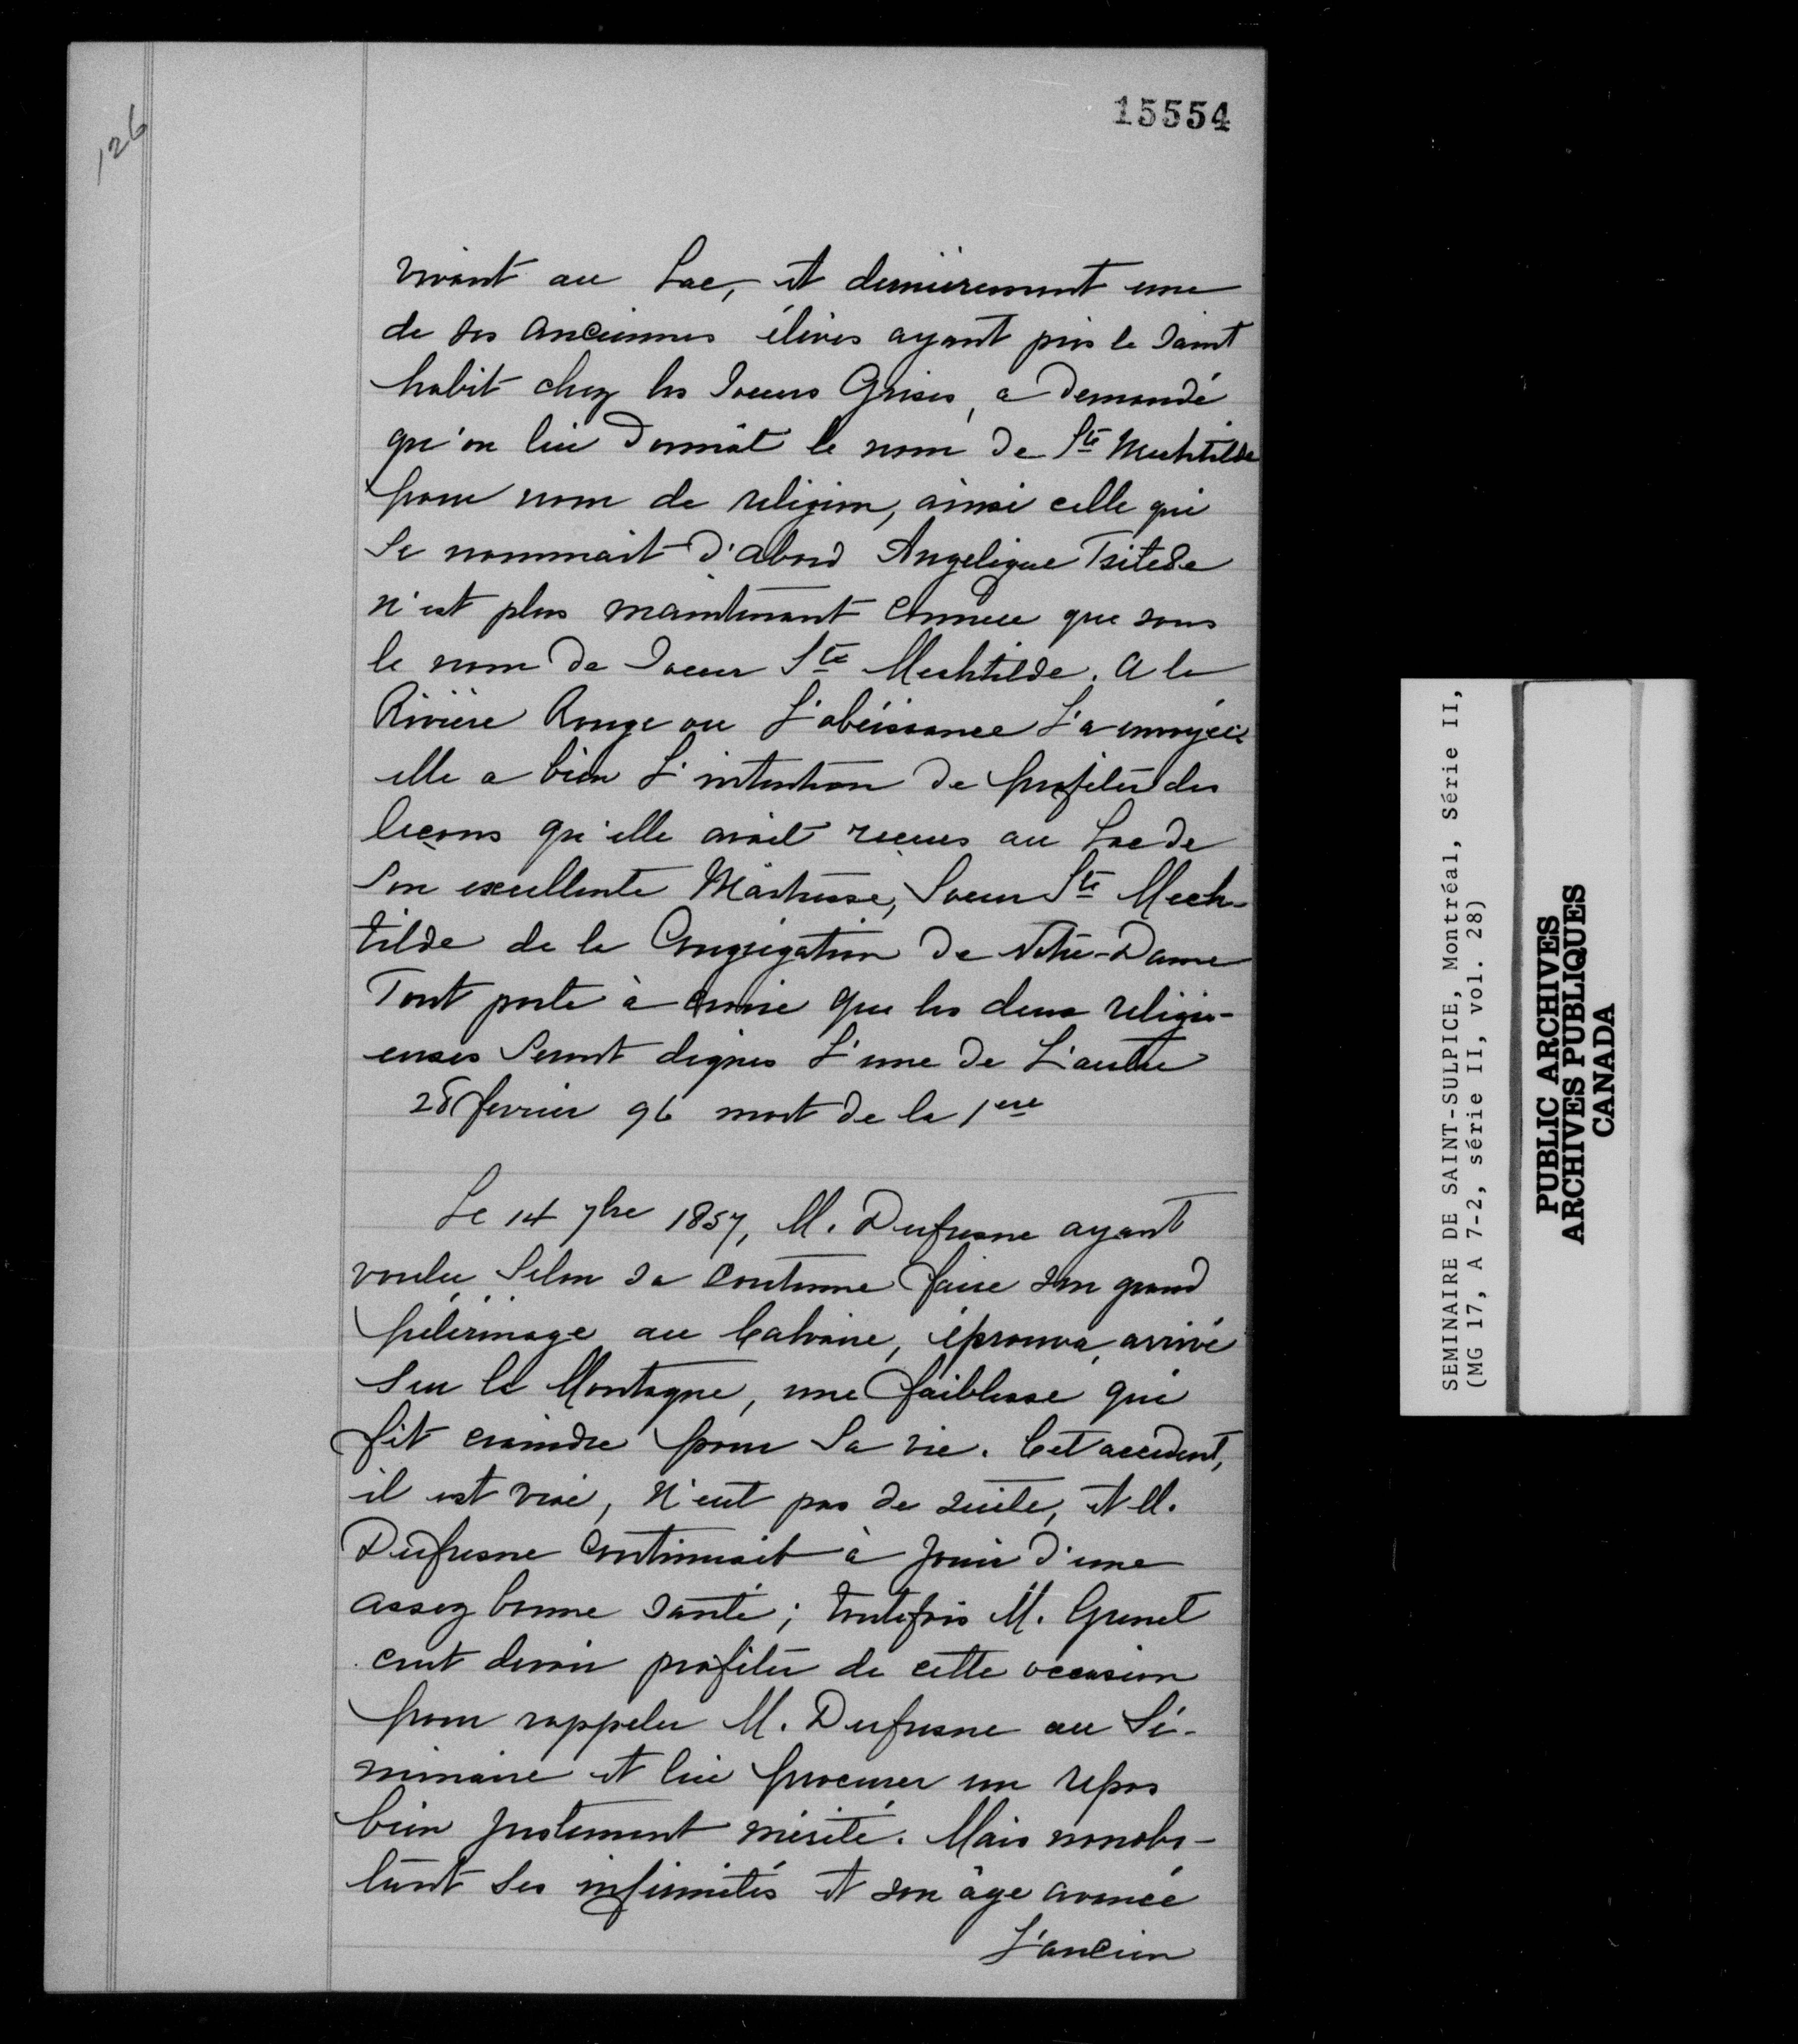 15554
126
vivant au Lac, et dernièrement une
de ses anciennes élèves ayant pris le saint
habit chez les Soeurs Grises, a demandé
qu'on lui donnât le nom de Ste Mechtilde
pour nom de religion, ainsi celle qui
se nommait d'abord Angelique Tsite8e
n'est plus maintenant connue que sous
le nom de Soeur Ste Mechtilde. A la
Rivière Rouge ou L'obéissance L'a envoyée
elle a bien L'intention de profiter des
leçons qu'elle avait reçues au Lac de
son excellente Maîtresse, Soeur Ste Mech-
tilde de la Congrégation de Notre-Dame
Tout porte à croire que les deux religi-
euses seront dignes L'une de L'autre
28 fevrier 96 mort de la 1ere
Le 14 7bre 1857, M. Dufresne ayant
voulu selon sa coutume faire son grand
pélérinage au Calvaire, éprouva, arrivé
sur la Montagne, une faiblesse qui
fit craindre pour sa vie. Cet accident,
il est vrai, n'eut pas de suite, et M.
Dufresne continuait à jouir d'une
assez bonne santé; toutefois M. Grenet
crut devoir profiter de cette occasion
pour rappeler M. Dufresne au Sé-
minaire et lui procurer un repos
bien justement mérité. Mais nonobs-
tant ses infirmités et son âge avancé
L'ancien
SEMINAIRE DE SAINT-SULPICE, Montréal, Série II,
(MG 17, A 7-2, série II, vol. 28)
PUBLIC ARCHIVES
ARCHIVES PUBLIQUES
CANADA